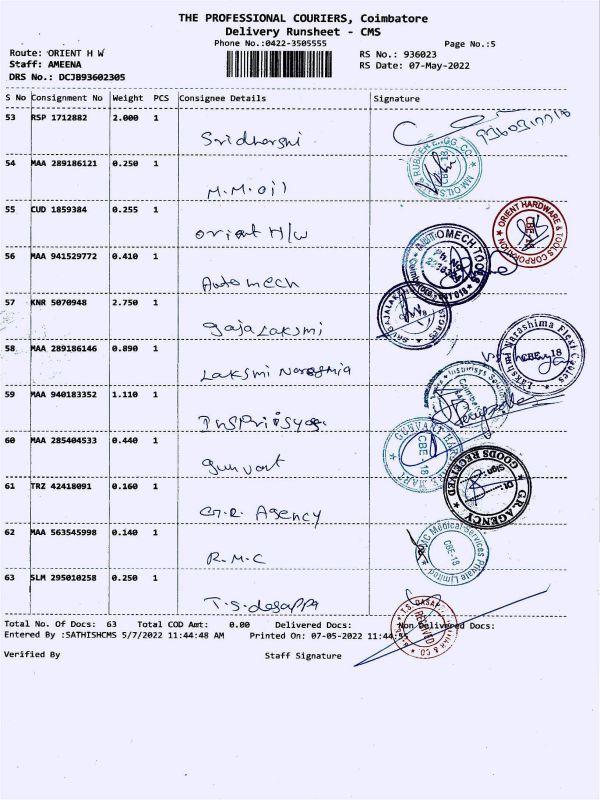 THE PROFESSIONAL COURIERS, Coimbatore
Delivery Runsheet - CMS
Phone No.:0422-3505555
Page No.:5
Route: ORIENT H W
RS No.: 936023
Staff: AMEENA
RS Date: 07-May-2022
DRS No.: DCJB93602305
S No Consignment No Weight PCS Consignee Details Signature
53 RSP 1712882 2.000 1
54 MAA 289186121 0.250 1
M.M.oil
55 CUD 1859384 0.255 1
orient H/W
56 MAA 941529772 0.410 1
Automech
57 KNR 5070948 2.750 1
gajaLaksmi
58 MAA 289186146 0.890 1
Laksmi
59 MAA 940183352 1.110 1
60 MAA 285404533 0.440 1
gunvant
61 TRZ 42418091 0.160 1
G.R. Agency
62 MAA 563545998 0.140 1
R.M.C
63 SLM 295010258 0.250 1
T.S.dasappa
MM OILS
CBE-18
ORIENT HARDWARE & TOOLS CORPORATION
CBE-18
OMECH TOOLS
Lakshmi Narashima Flexi Cables
CBE-18
CBE-18
G.R.AGENCY
GOODS RECEIVED
Dt :
Sign :
MC Medical Services Private Limited
CBE-18
T.S. DASAP
RECEIVED
& CO.
Total No. Of Docs: 63 Total COD Amt: 0.00 Delivered Docs: Non Delivered Docs:
Entered By :SATHISHCMS 5/7/2022 11:44:48 AM Printed On: 07-05-2022 11:44:55
Verified By Staff Signature